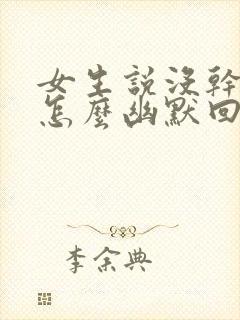 女生説没幹
怎麼幽默回
李余典